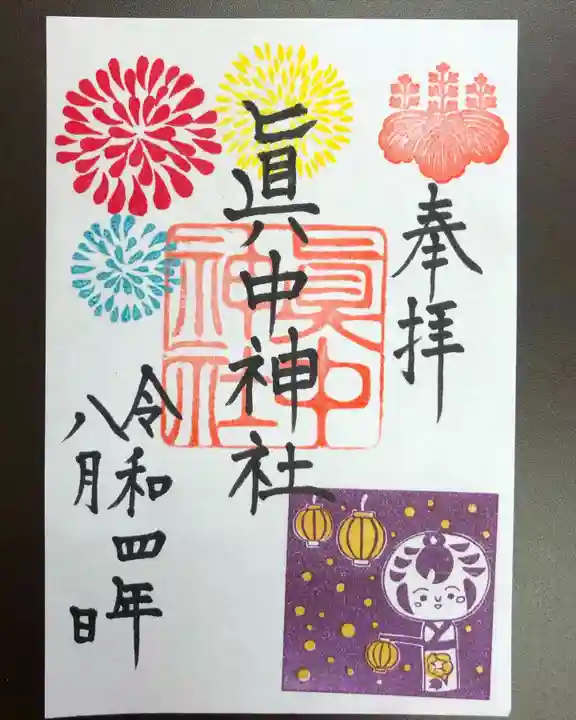 奉拝
眞中神社
眞中
神社
令和四年
八月 日